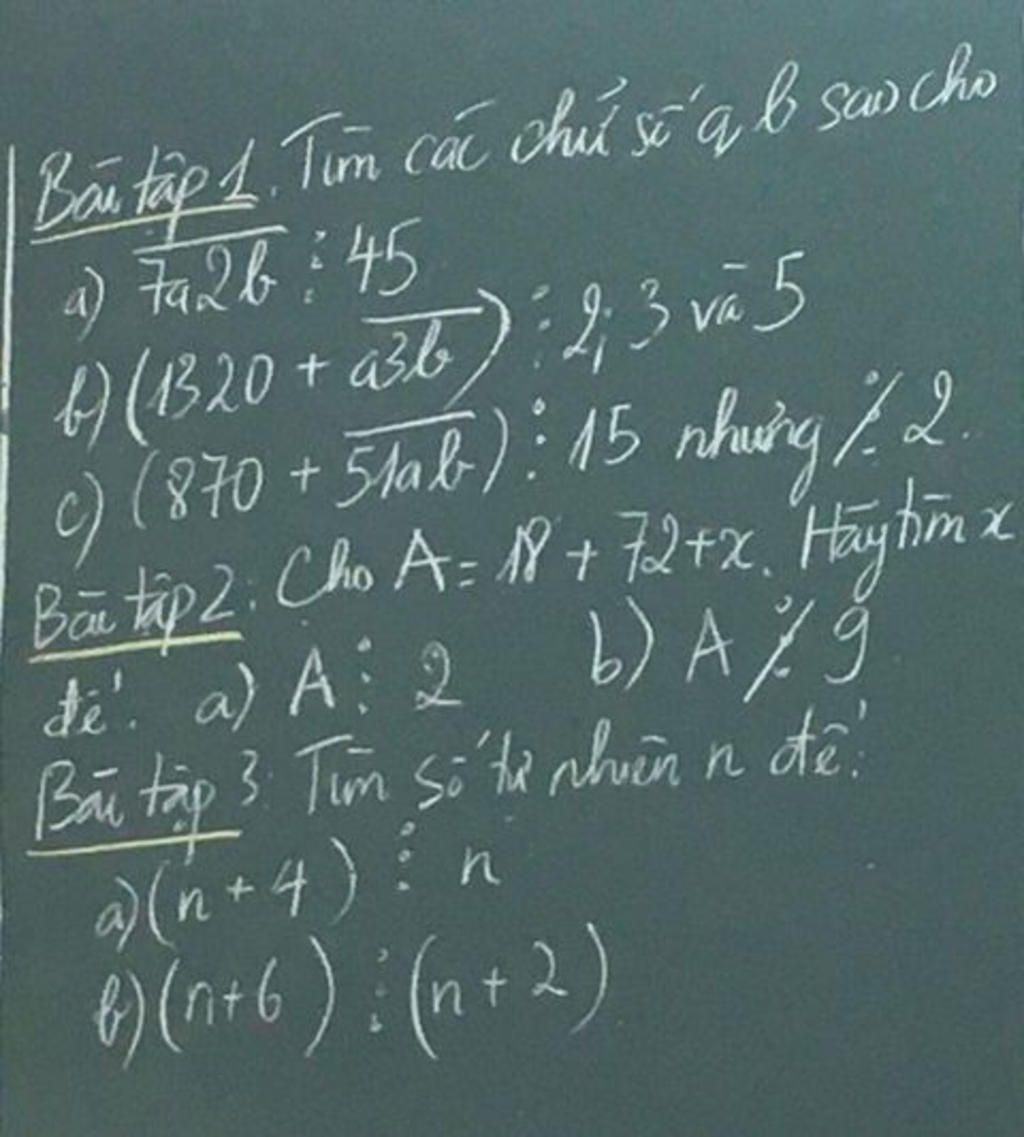 Bài tập 1. Tìm các chữ số a, b sao cho
a) \overline{7a2b} ⋮ 45
b) (1320 + \overline{a3b}) ⋮ 2; 3 và 5
c) (870 + \overline{51ab}) ⋮ 15 nhưng ⋮̸ 2.
Bài tập 2: Cho A = 18 + 72 + x. Hãy tìm x
để: a) A ⋮ 2 b) A ⋮̸ 9
Bài tập 3: Tìm số tự nhiên n để:
a) (n + 4) ⋮ n
b) (n + 6) ⋮ (n + 2)